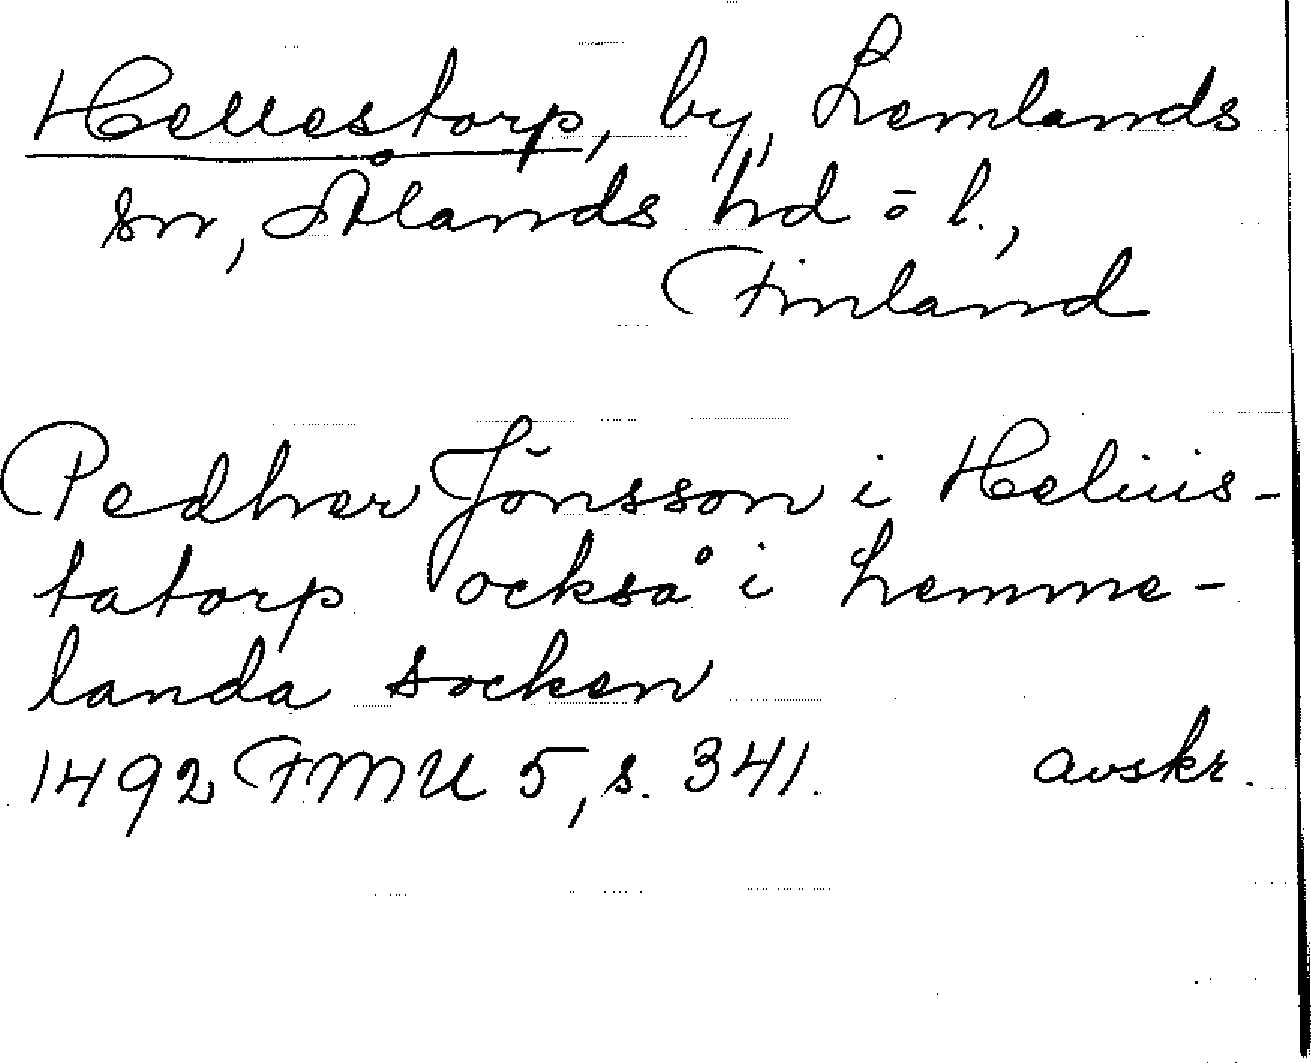 Hellestorp, by, Lemlands
sn, Ålands hd o l.,
Finland
Pedher Jönsson i Heliiis-
tatorp också i Lemme-
landa socken
1492 FMU 5, s. 341. avskr.